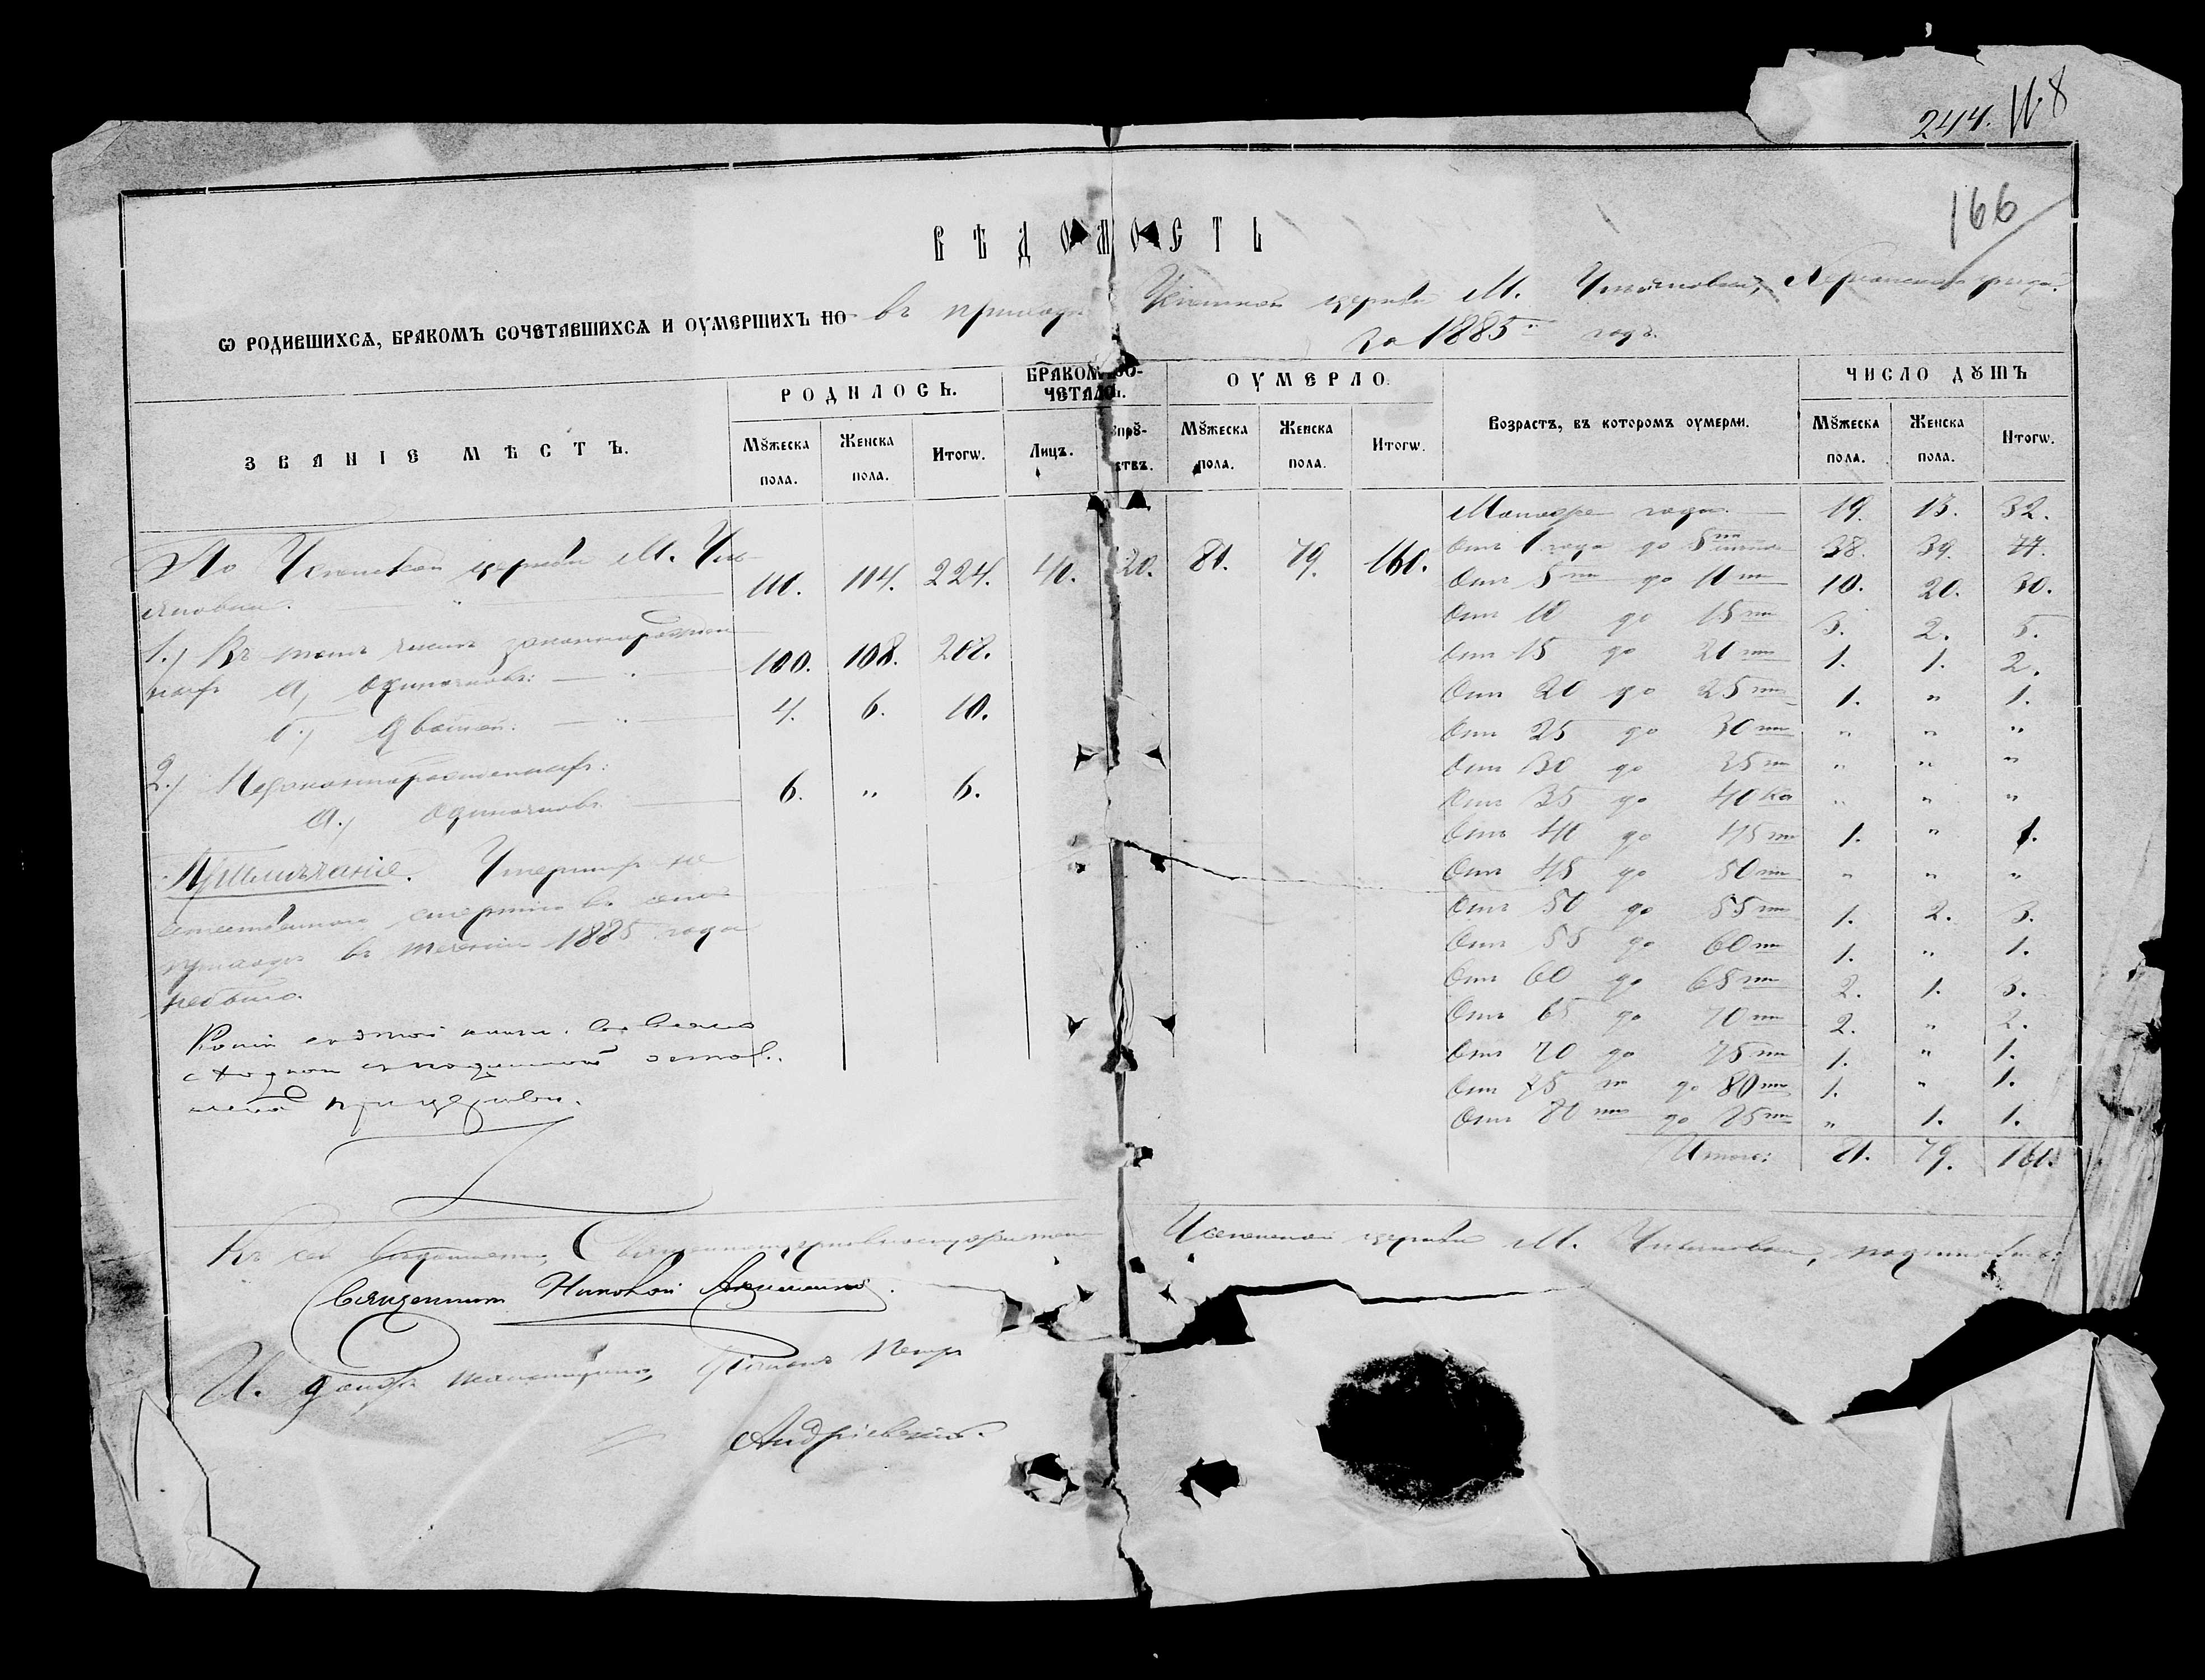 244. №8
166
ВѢДОМОСТЬ
Ѡ РОДИВШИХСѦ, БРАКОМЪ СОЧЕТАВШИХСѦ И ОУМЕРШИХЪ ПО въ приходѣ Успенской церкви М.
За 1885й годъ.
ЗВАНІЕ МѢСТЪ.
РОДИЛОСЬ.
БРАКОМЪ СО-
ЧЕТАЛОСЬ.
ОУМЕРЛО.
Возрастъ, въ которомъ оумерли.
ЧИСЛО ДꙊШЪ
Мꙋжеска пола. Женска пола. Итогѡ. Лицъ. Мꙋжеска пола. Женска пола. Итогѡ. Мꙋжеска пола. Женска пола. Итогѡ.
По Успенской церкви М.
110. 114. 224. 40. 20. 81. 79. 160.
1.) Въ томъ числѣ законнорожден-
ныхъ а, одиночковъ: 100. 108. 208.
б.) двойней: 4. 6. 10.
2.) Незаконнорожденныхъ:
а.) одиночковъ 6. " 6.
Примѣчаніе. Умершихъ не
естественною смертію въ семъ
приходѣ въ теченіи 1885 года
небыло.
Копія съ этой книги
сходной съ подлинной остав-
лена при церкви.
Моложе года. 19. 13. 32.
Отъ 1 года до 5ти 38. 39. 77.
Отъ 5ти до 10ти 10. 20. 30.
Отъ 10 до 15ти 3. 2. 5.
Отъ 15 до 20ти 1. 1. 2.
Отъ 20 до 25ти 1. " 1.
Отъ 25 до 30ти " " "
Отъ 30 до 35ти " " "
Отъ 35 до 40ка " " "
Отъ 40 до 45ти 1. " 1.
Отъ 45 до 50ти " " "
Отъ 50 до 55ти 1. 2. 3.
Отъ 55 до 60ти 1. " 1.
Отъ 60 до 65ти 2. 1. 3.
Отъ 65 до 70ти 2. " 2.
Отъ 70 до 75ти 1. " 1.
Отъ 75ти до 80ти 1. " 1.
Отъ 80ти до 85ти " 1. 1.
Итого: 81. 79. 160.
Къ сей вѣдомости, Священноцерковнослужители Успенской церкви М.
Священникъ Николай
И. должн. псаломщика, Діаконъ Петръ
Андріевскій.